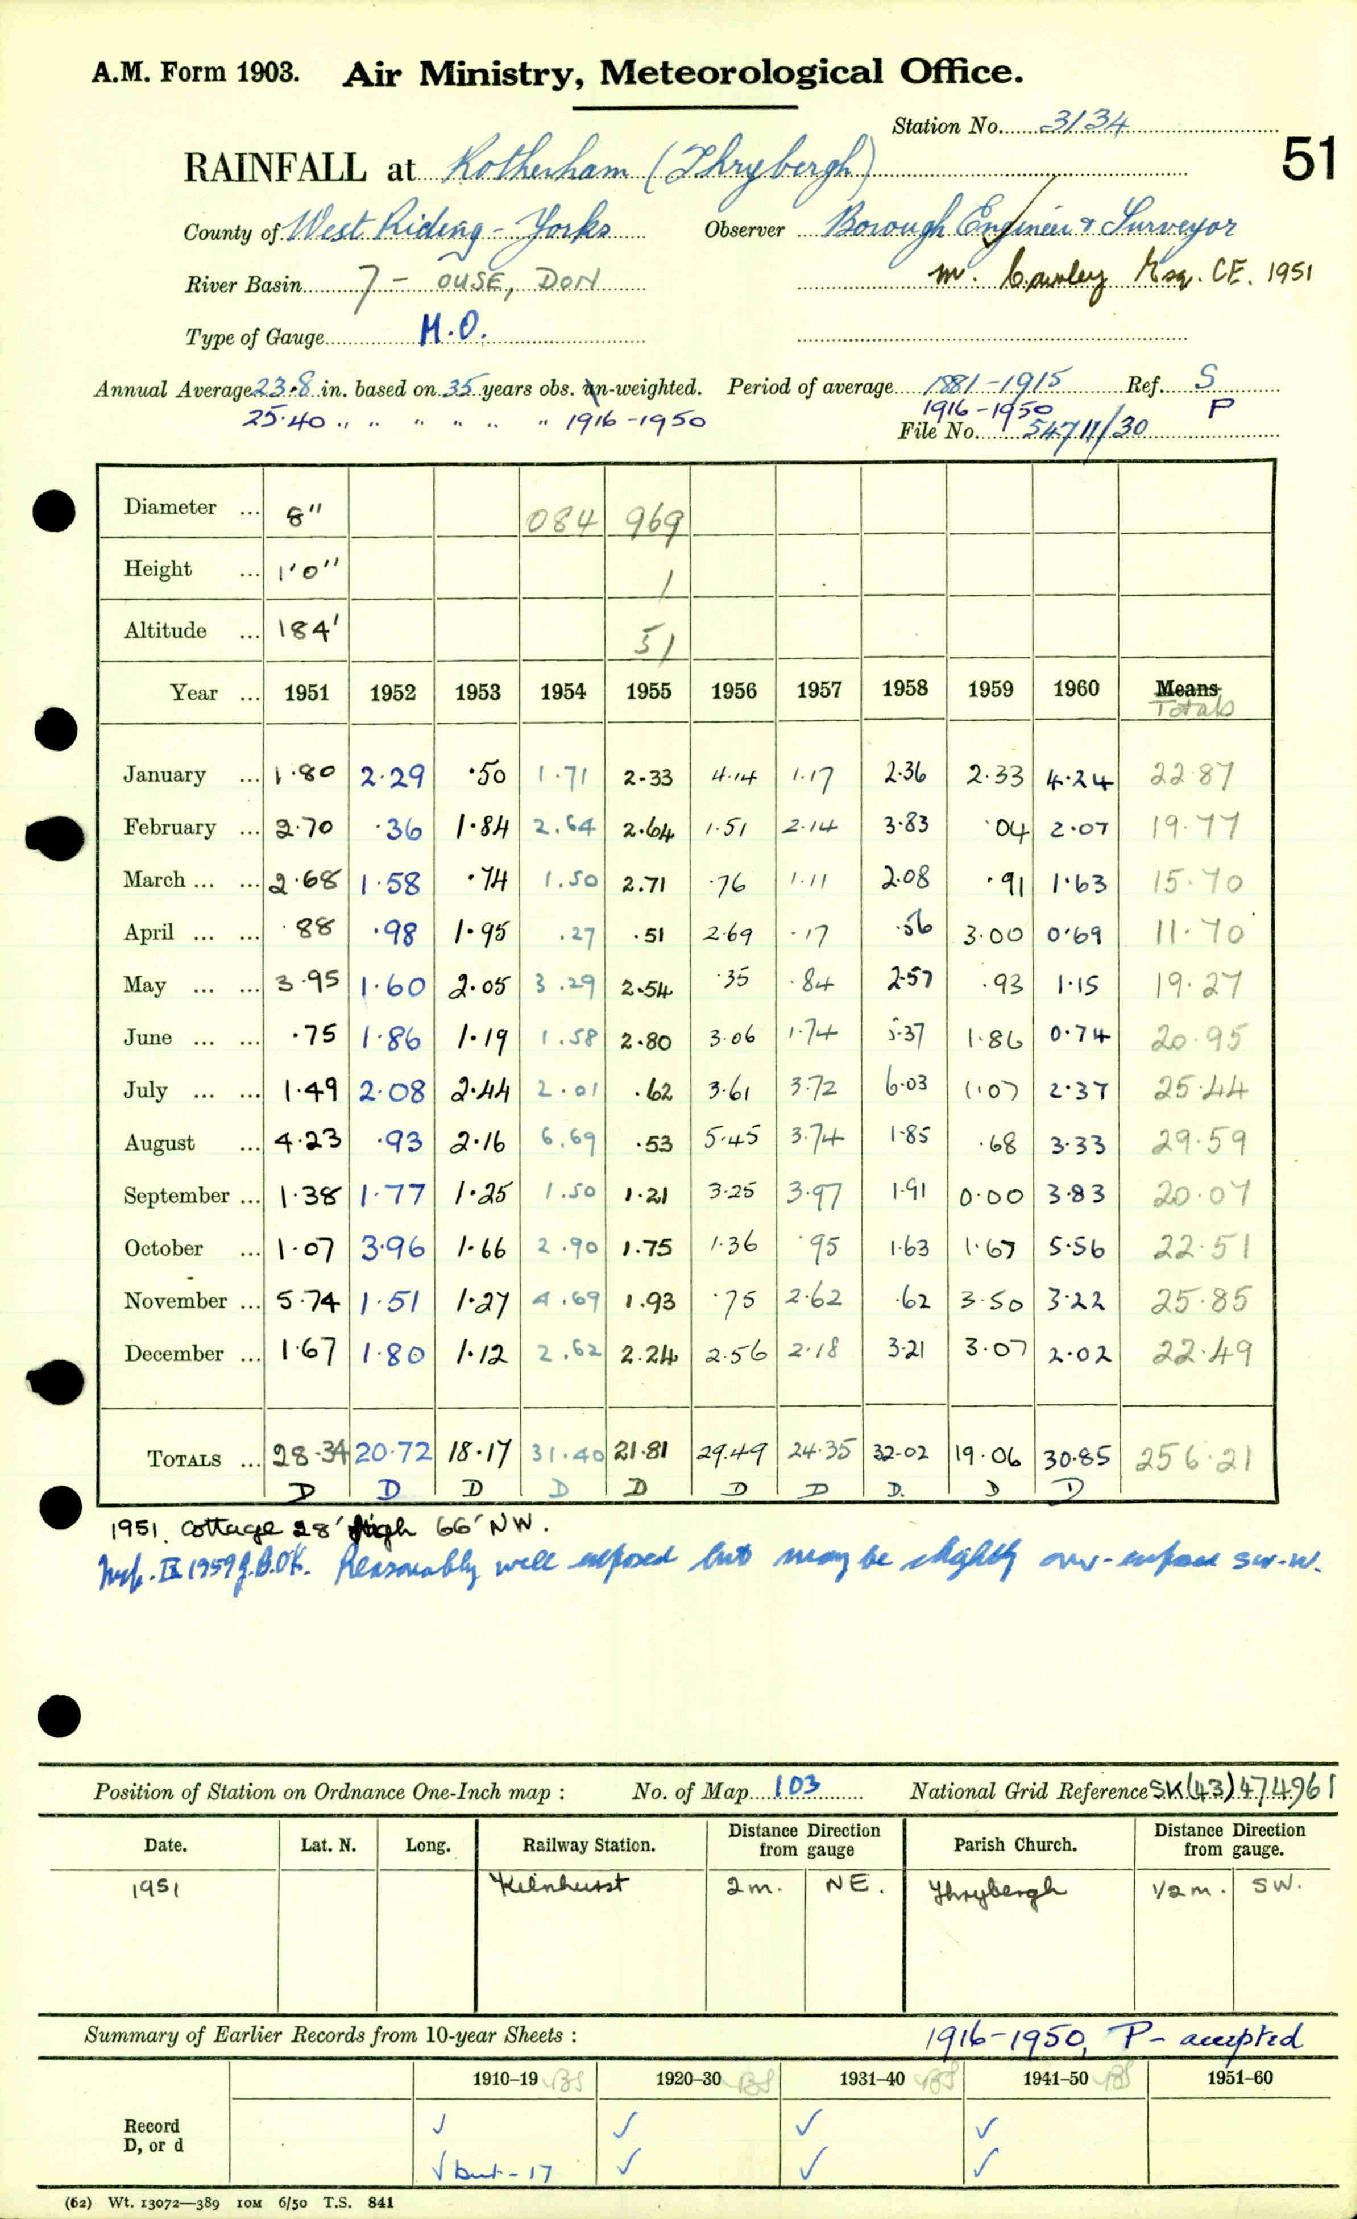 A.M. Form 1903. Air Ministry, Meteorological Office.
Station No. 3134
51
RAINFALL at Rotherham (Thrybergh)
County of West Riding - Yorks Observer Borough Engineer & Surveyor
River Basin 7 - OUSE, DON M. Cawley Esq. CE. 1951
Type of Gauge M.O.
Annual Average 23.8 in. based on 35 years obs. un-weighted. Period of average 1881-1915 Ref. S
25.40 " " " " " " 1916-1950 1916-1950 P
File No. 54711/30
Diameter ... 8" 084 969
Height ... 1'0" 1
Altitude ... 184' 51
Year ... 1951 1952 1953 1954 1955 1956 1957 1958 1959 1960 Means
Totals
January ... 1.80 2.29 .50 1.71 2.33 4.14 1.17 2.36 2.33 4.24 22.87
February ... 2.70 .36 1.84 2.64 2.64 1.51 2.14 3.83 .04 2.07 19.77
March ... ... 2.68 1.58 .74 1.50 2.71 .76 1.11 2.08 .91 1.63 15.70
April ... ... .88 .98 1.95 .27 .51 2.69 .17 .56 3.00 0.69 11.70
May ... ... 3.95 1.60 2.05 3.29 2.54 .35 .84 2.57 .93 1.15 19.27
June ... ... .75 1.86 1.19 1.58 2.80 3.06 1.74 5.37 1.86 0.74 20.95
July ... ... 1.49 2.08 2.44 2.01 .62 3.61 3.72 6.03 1.07 2.37 25.44
August ... 4.23 .93 2.16 6.69 .53 5.45 3.74 1.85 .68 3.33 29.59
September ... 1.38 1.77 1.25 1.50 1.21 3.25 3.97 1.91 0.00 3.83 20.07
October ... 1.07 3.96 1.66 2.90 1.75 1.36 .95 1.63 1.67 5.56 22.51
November ... 5.74 1.51 1.27 4.69 1.93 .75 2.62 .62 3.50 3.22 25.85
December ... 1.67 1.80 1.12 2.62 2.24 2.56 2.18 3.21 3.07 2.02 22.49
TOTALS ... 28.34 20.72 18.17 31.40 21.81 29.49 24.35 32.02 19.06 30.85 256.21
D D D D D D D D. D D
1951. Cottage 28' high 66' NW.
Insp. IX 1959 J.B.OK. Reasonably well exposed but may be slightly over-exposed SW-W.
Position of Station on Ordnance One-Inch map : No. of Map 103 National Grid Reference SK(43)474961
Date. Lat. N. Long. Railway Station. Distance from gauge Direction Parish Church. Distance from gauge. Direction
1951 Kilnhurst 2m. NE. Thrybergh 1/2m. SW.
Summary of Earlier Records from 10-year Sheets : 1916-1950, P - accepted
1910-19 1920-30 1931-40 1941-50 1951-60
Record ✓ ✓ ✓ ✓
D, or d ✓ but - 17 ✓ ✓ ✓
(62) Wt. 13072—389 10M 6/50 T.S. 841